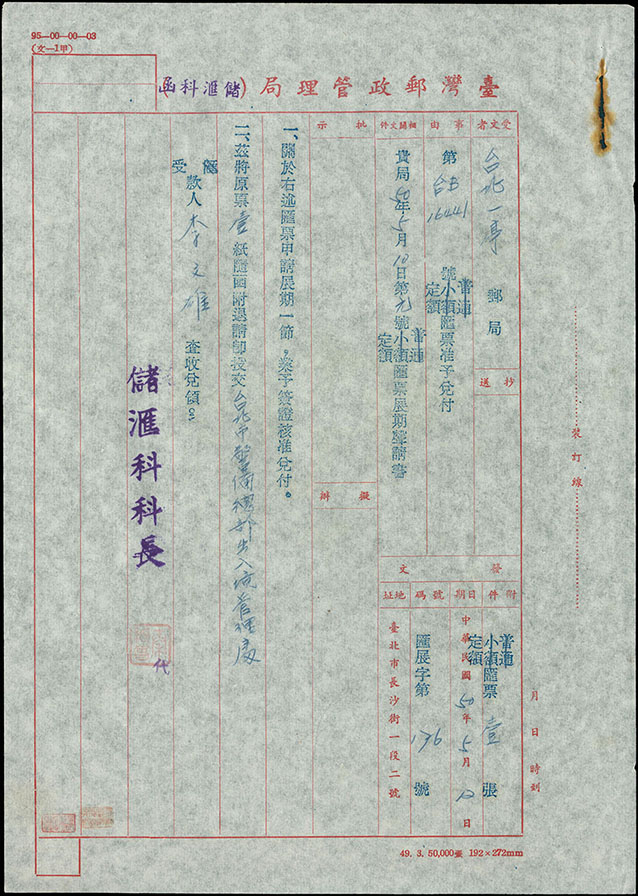 95—00—00—03
(文—1甲)
臺灣郵政管理局(儲滙科函)
受文者
台北一亭 郵局
抄送
事由
第 台B 16441 號 普通 小額 定額 匯票准予兌付
相關文件
貴局50年5月10日第元號 普通 小額 定額 匯票展期聲請書
批示
擬辦
發文
附件
普通 小額 定額 匯票 壹 張
日期
中華民國50年5月12日
號碼
匯展字第 136 號
地址
臺北市長沙街一段二號
一、關於右述匯票申請展期一節,業予簽證核准兌付。
二、茲將原票壹紙隨函附退請卽投交台北市警備總部出入境管理處
受款人 李文雄 查收兌領。
儲滙科科長
代
裝訂線
月 日 時到
49. 3. 50,000張 192×272mm